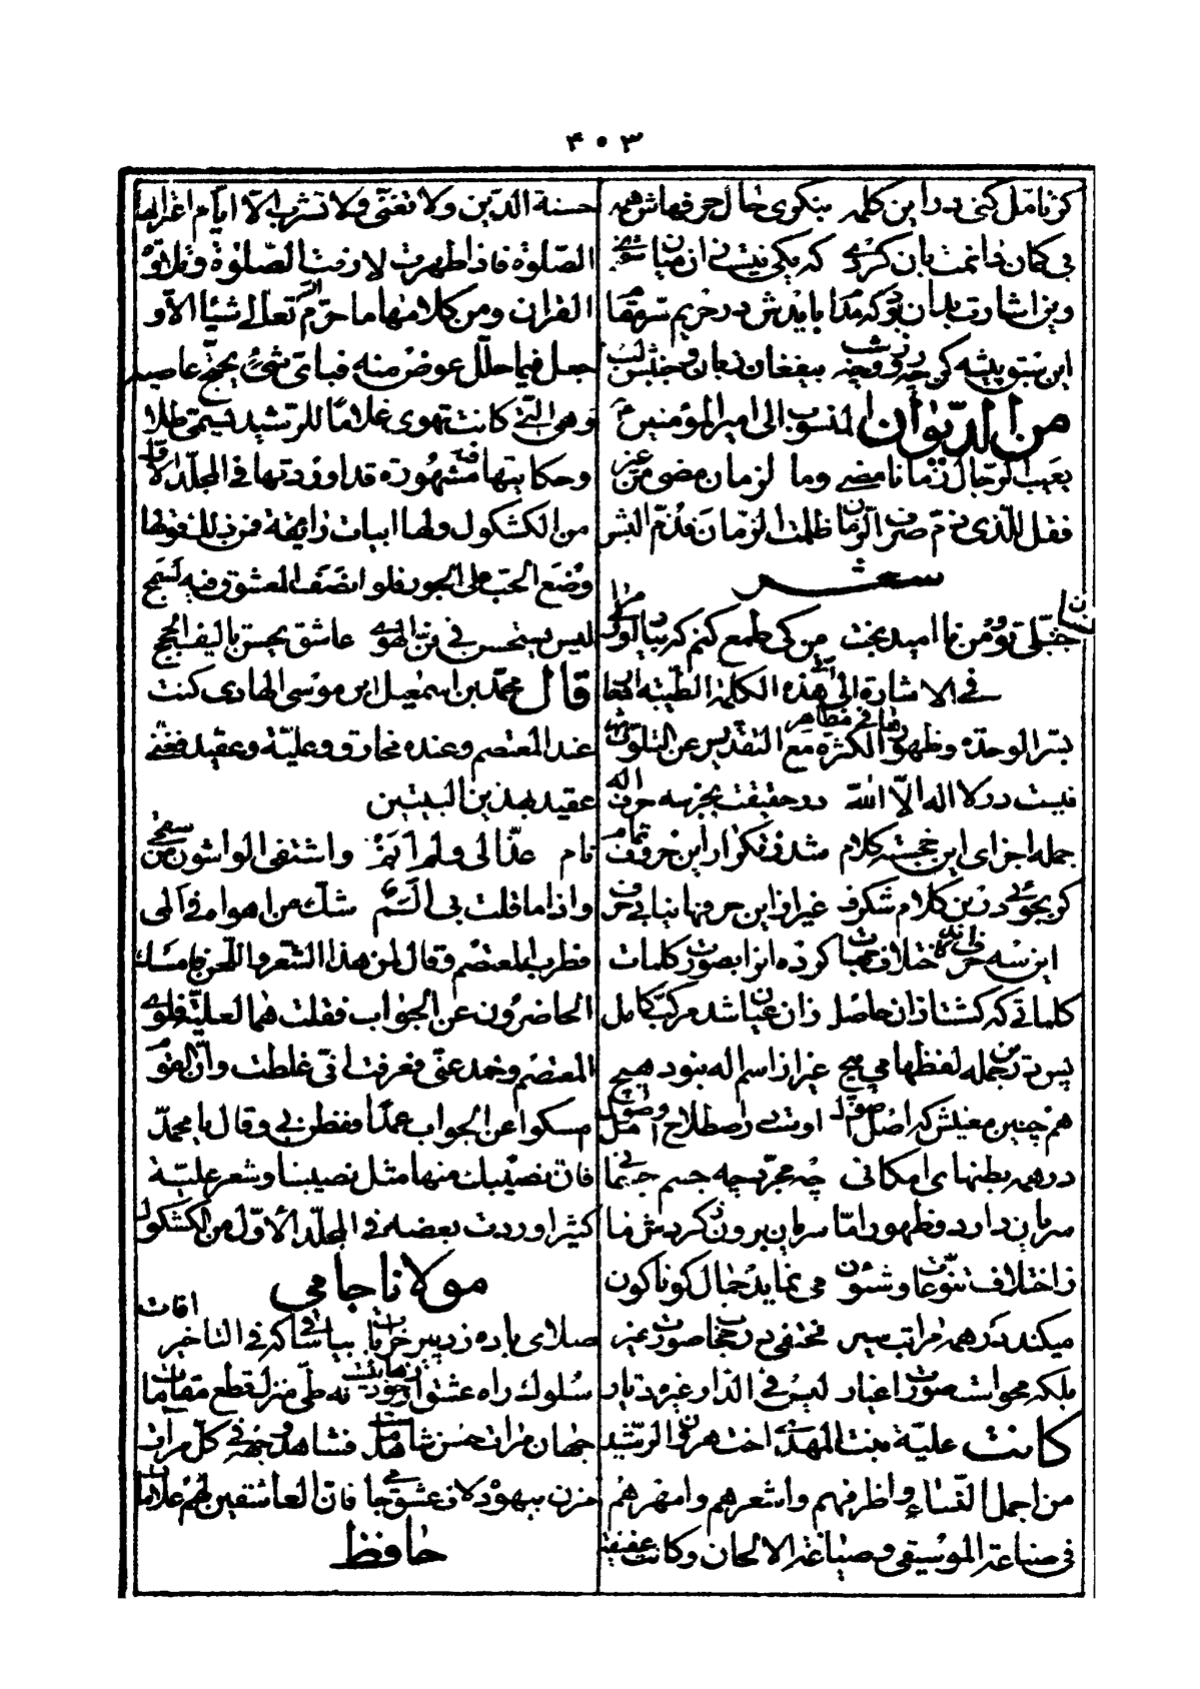 ۴۰۳
کر تامل کنی در این کلمه بنگری حال حرفهاش همه
بی کمان دانمت بان کروی که یکی نیست زان میان شفوی
وین اشارت بدان بود که مدام بایدش در حریم سر مقام
این بتو پیشه کن چه روز و چه شب بیفغان زبان و جنبش لب
من الدیوان المنسوب الی امیر المؤمنین
یعیب الرجال زمانا مضی وما لزمان مضی من غیر
فقل للذی ذم صرف الزمان ظلمت الزمان فذم البشر
شعر
من کی طمع کنم که بیابم
فی الاشارة الی هذه الکلمة الطیبة
بسر الوحدة وظهورها فی مظاهر الکثرة مع التقدیس عن التلوث
نیست در لا اله الا الله در حقیقت بجز سه حرف اله
جمله اجزای این خجسته کلام شد ز تکرار این حروف تمام
کر بجوئی در این کلام شکرف غیر از این حرفها نیابی حرف
این سه حرف اختلاف کرده از ابصورت کلمات
کلماتی که کشت از آن حاصل زان عیان شد مرکب کامل
پس در جمله لفظها می پیچ غیر از اسم اله نبود هیچ
هم چنین معنیش که اصل اصول اوست در اصطلاح اهل وصول
در همه بطنهای امکانی چه مجرد چه جسم جسمانی
سریان دارد و ظهور اما سریان برون ز کردش ما
ز اختلاف تنوعات و شئون می نماید جمال کوناکون
میکند در همه مراتب سیر مختفی در حجاب صورت غیر
بلکه محو است صورت اغیار لیس فی الدار غیره دیار
کانت علیة بنت المهدی اخت هرون الرشید
من اجمل النساء واظرفهم واشعرهم وامهرهم
فی صناعة الموسیقی وصیاغة الالحان وکانت عفیفة
حسنة الدین ولا تغنی ولا تشرب الا ایام اعتزالها
الصلوة فاذا طهرت لازمت الصلوة وتلاوة
القرآن ومن کلامها ما حرم الله تعالی شیئا الا و
جعل فیما حلل عوض منه فبای شیء یحتج عاصیه
وهی التی کانت تهوی غلاما للرشید یسمی طلا
وحکایتها مشهورة قد اوردتها فی المجلد الاول
من الکشکول ولها ابیات رائقة فمن ذلک قولها
وضع الحب علی الجور فلو انصف المعشوق فیه لسمج
لیس یستحسن فی فن الهوی عاشق یحسن تالیف الحجج
قال محمد بن اسمعیل ابن موسی الهادی کنت
عند المعتصم وعنده مخارق وعلیة وعقید فغنی
عقید بهذین البیتین
نام عذالی ولم انم واشتفی الواشون من سقمی
واذا ما قلت بی الم شک من اهواه فی المی
فطرب المعتصم وقال لمن هذا الشعر واللحن فامسک
الحاضرون عن الجواب فقلت هما لعلیة فلوی
المعتصم وجهه عنی فعرفت انی غلطت وان القوم
مسکوا عن الجواب عمدا ففطن بی وقال یا محمد
فان نصیبک منها مثل نصیبنا وشعر علیة
کثیر اوردت بعضه فی المجلد الاول من الکشکول
مولانا جامی
صلای باده زد پیر خرابات بیا ساقی که فی التاخیر افات
سلوک راه عشق از خود رهائیست نه طی منزل و قطع مقامات
جهان مرآت حسن شاهد ماست فشاهد وجهه فی کل مرآت
مزن بیهوده لاف عشق جامی فان العاشقین لهم علامات
حافظ